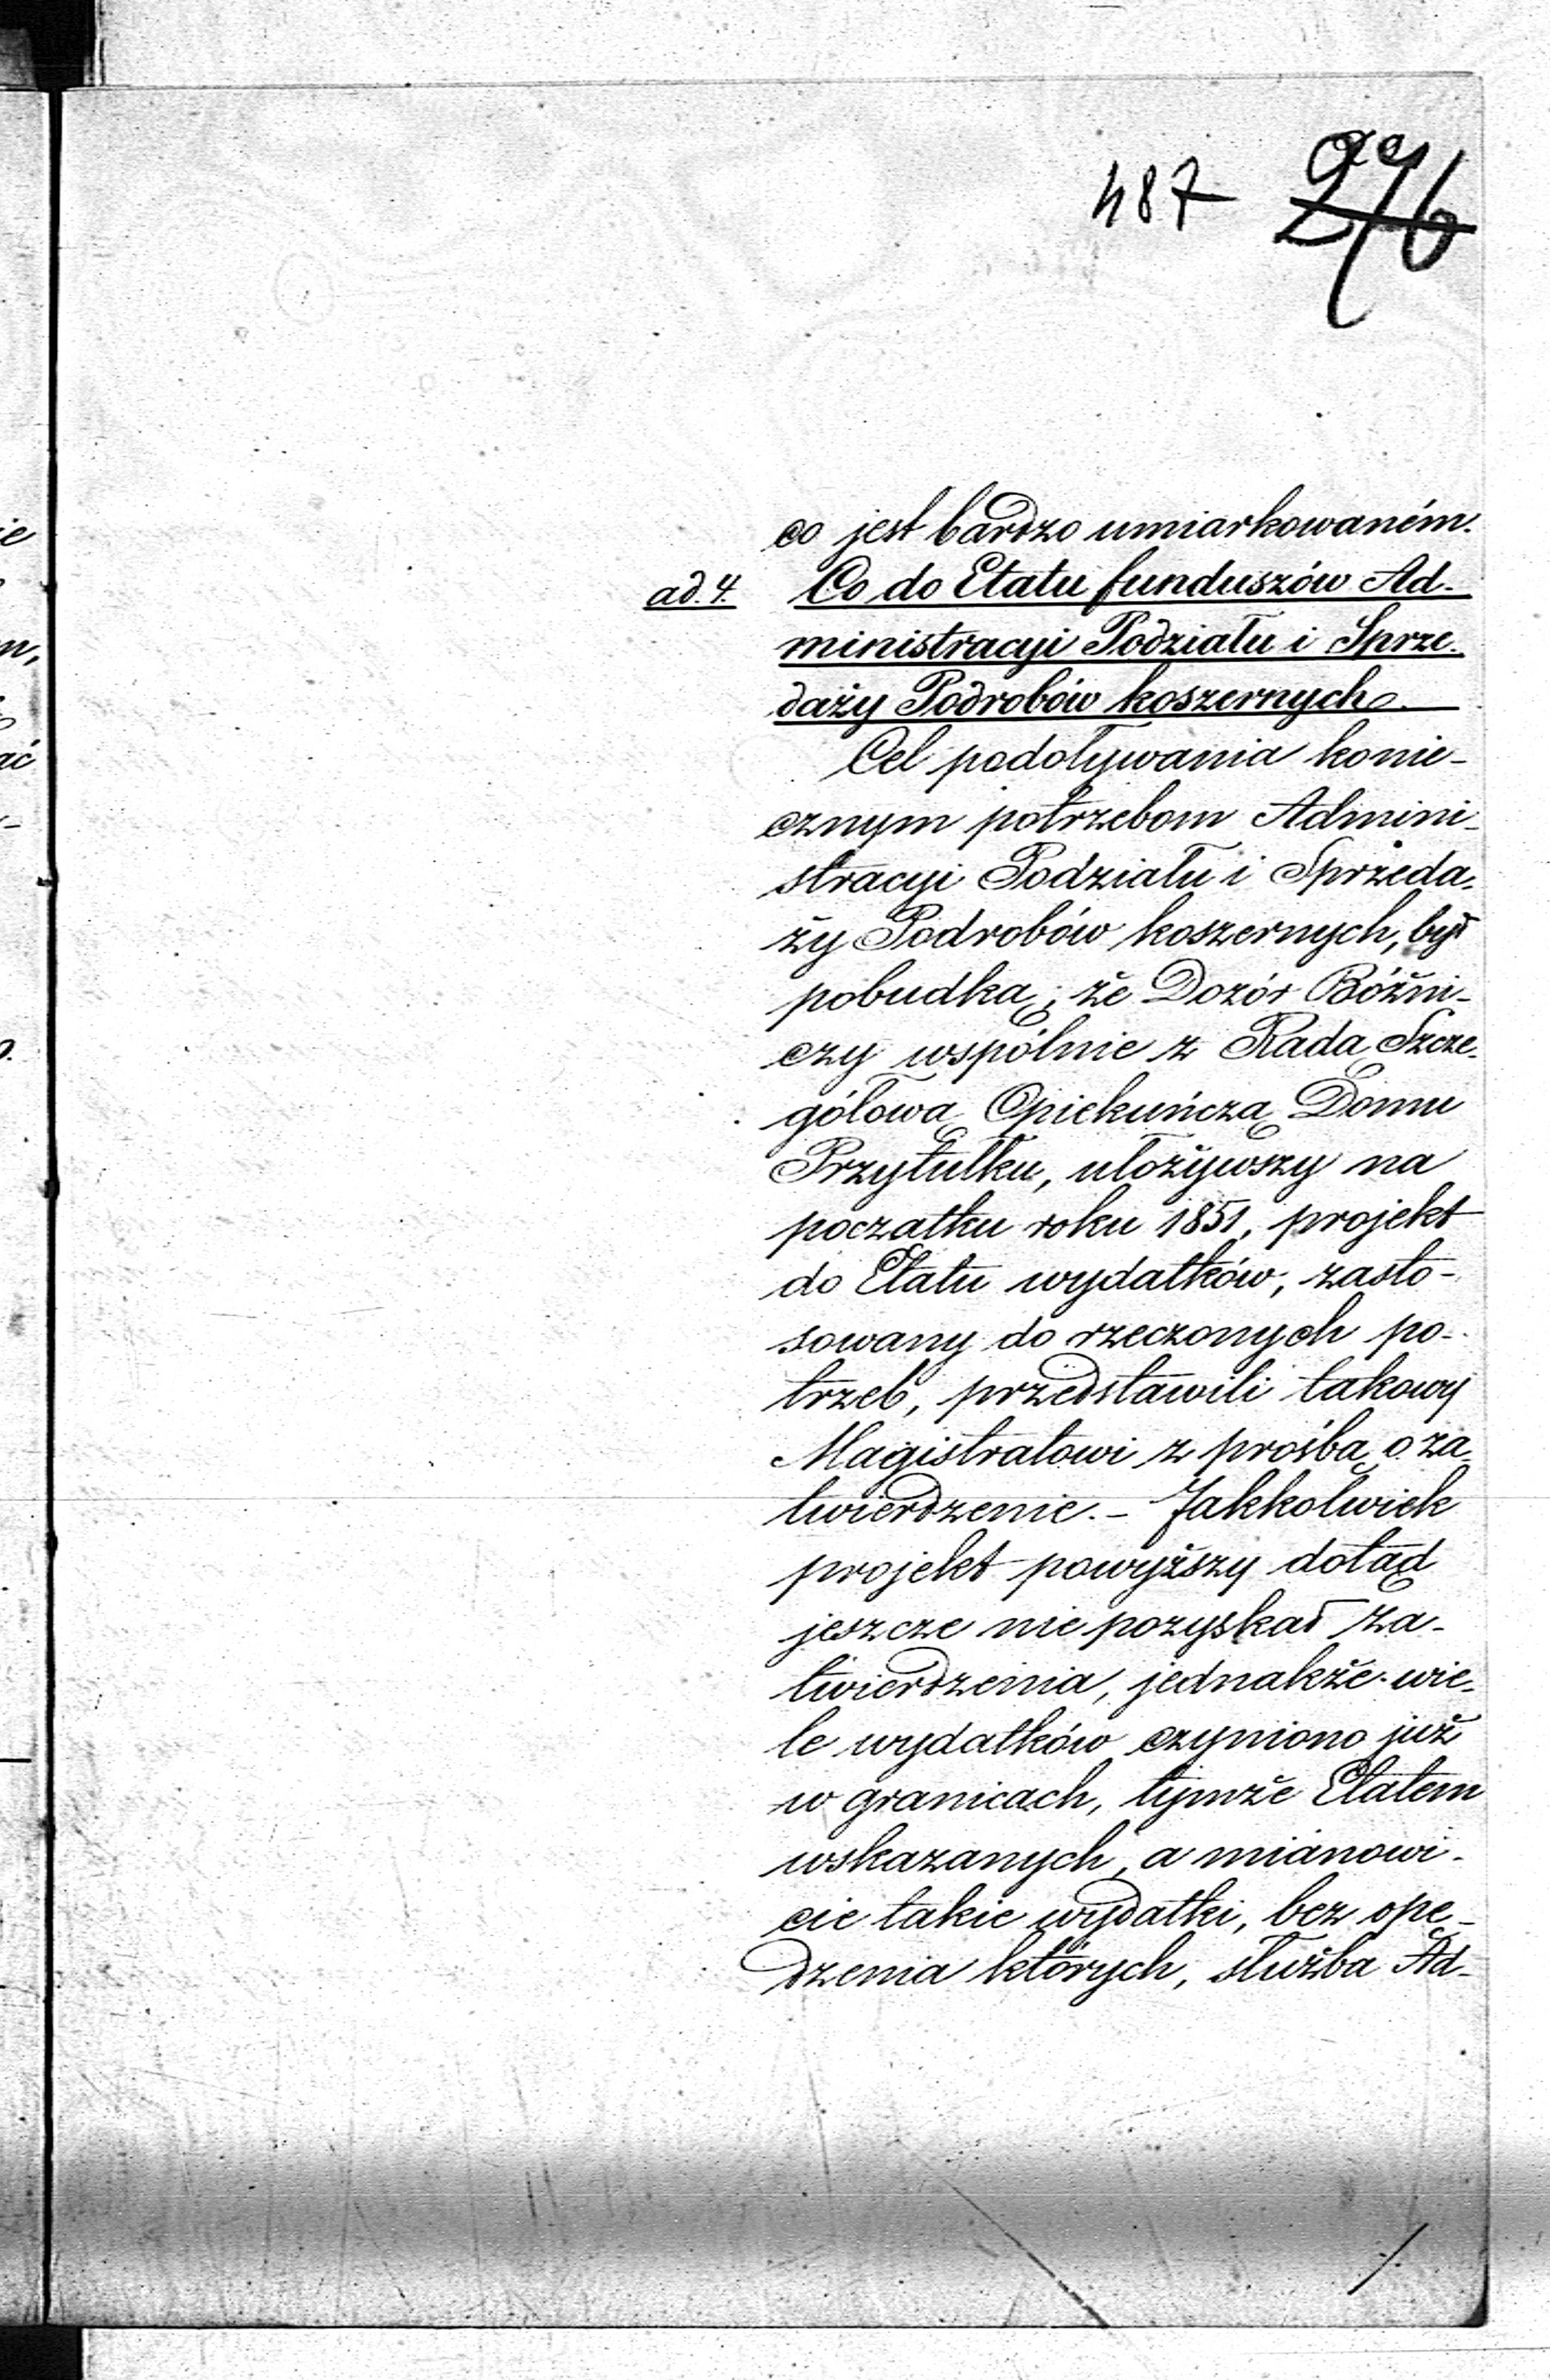 487 276
co jest bardzo umiarkowaném.
ad. 4. Co do Etatu funduszów Ad-
ministracyi Podziału i Sprze-
daży Podrobów koszernych.
Cel podoływania konie-
cznym potrzebom Admini-
stracyi Podziału i Sprzeda-
ży Podrobów koszernych, był
pobudką, że Dozór Bóżni-
czy wspólnie z Radą Szcze-
gółową Opiekuńczą Domu
Przytułku, ułożywszy na
początku roku 1851, projekt
do Etatu wydatków, zasto-
sowany do rzeczonych po-
trzeb, przedstawili takowy
Magistratowi z prośbą o za-
twierdzenie. - Jakkolwiek
projekt powyższy dotąd
jeszcze nie pozyskał za-
twierdzenia, jednakże wie-
le wydatków czyniono już
w granicach, tymże Etatem
wskazanych, a mianowi-
cie takie wydatki, bez opę-
dzenia których, służba Ad-